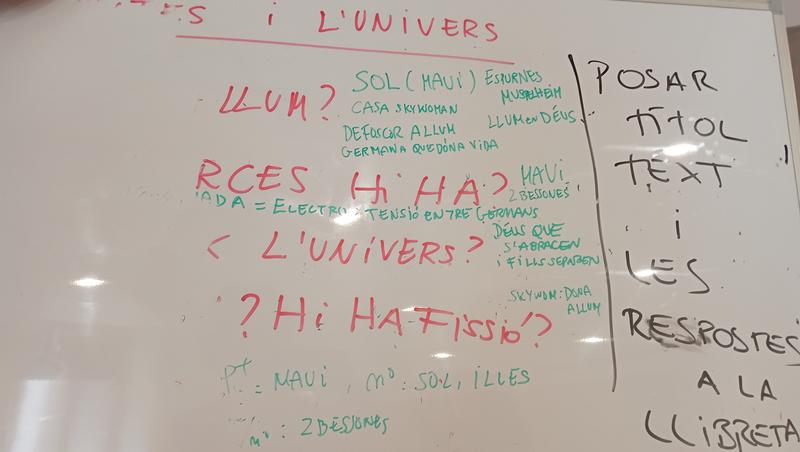 ES i L'UNIVERS
LLUM?
SOL (MAUi)
CASA SKYWOMAN
DE FOSCOR A LLUM
GERMANA QUE DÓNA VIDA
ESPURNES
MUSPELHEIM
LLUM en DÉUS
RCES Hi HA?
MAUi
2 BESSONES
ADA = ELECTRO : TENSIÓ ENTRE GERMANS
L'UNIVERS?
DÉUS QUE
S'ABRACEN
i FILLS SEPAREN
? Hi HA FISSIÓ?
SKYWOM: DONA
A LLUM
P+ = MAUi, nº: SOL, ILLES
nº: 2 BESSONES
POSAR
TÍTOL
TEXT
i
LES
RESPOSTES
A LA
LLIBRETA